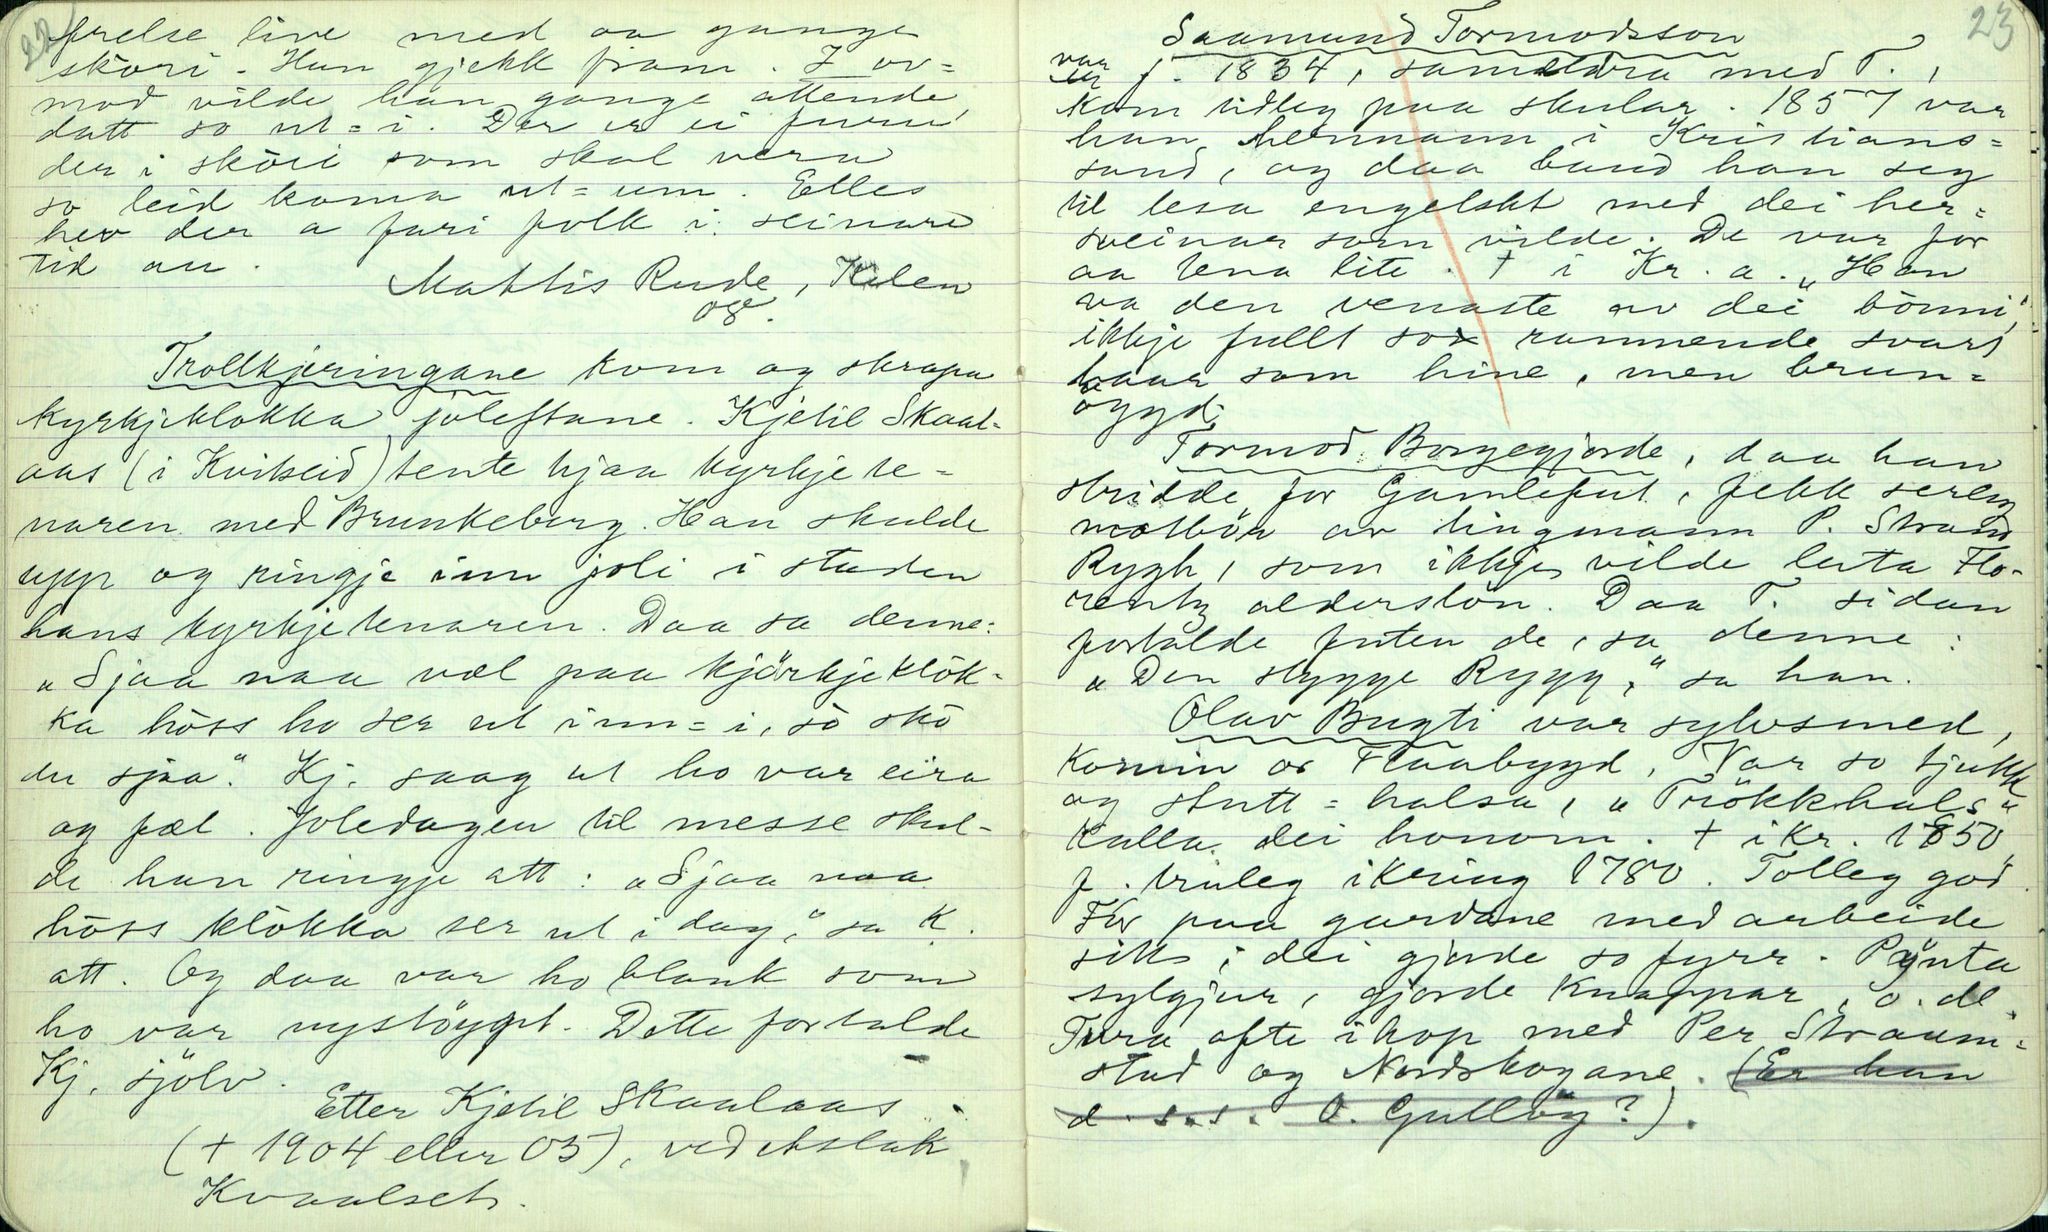 22
frelse live med aa gange
skòri. Hun gjekk fram. I ov=
mod vilde han gange attende,
datt so ut=i. Der er ei furu
der i skòri som skal vera
so leid koma ut=um. Elles
hev der a fari folk i seinare
tid au.
Mattis Rude, Kilen
08.
Trollkjeringane kom og skrapa
kyrkjeklokka joleftane. Kjetil Skaal-
aas (i Kvitseid) tente hjaa kyrkjete-
naren med Brunkeberg. Han skulde
upp og ringje inn joli i staden
hans kyrkjetenaren. Daa sa denne:
„Sjaa naa væl paa kjörkjeklòk-
ka hòss ho ser ut inn=i, sò skò
du sjaa“. Kj. saag at ho var eira
og fæl. Joledagen til messe skul-
de han ringje att: „Sjaa naa
hòss klòkka ser ut i dag,“ sa K.
att. Og daa var ho blank som
ho var nystöypt. Dette fortalde
Kj. sjölv.
Etter Kjetil Skaalaas
(† 1904 eller 05), ved Aslak
Kvaalset.
23
Saamund Tormodsson
var f. 1834, sameldra med T.,
kom tidleg paa skular. 1857 var
han hermann i Kristians=
sand, og daa baud han seg
til lesa engelskt med dei her=
sveinar som vilde. De var for
aa tena lite. † i Kr. a. „Han
va den venaste av dei bönni,
ikkje fullt so rammende svart
haar som hine, men brun=
öygd.
Tormod Borgegjorde, daa han
stridde for Gamlefut, fekk serleg
motbör av tingmann P. Strand
Rygh, som ikkje vilde lata Flo-
rentz alderslön. Daa T. sidan
fortalde futen de, sa denne:
„Den stygge Rygg,“ sa han.
Olav Bugti var sylvsmed,
komin or Flaabygd. Var so tjukk
og stutt=halsa, „Trökkhals“
kalla dei honom. † i Kr. 1850,
f. truleg ikring 1780. Tolleg god.
For paa gardane med arbeide
sitt; dei gjorde so fyrr. Pynta
sylgjur, gjorde knappar, o. dl.
Tura ofte ihop med Per Straum=
stad og Nordskogane. (Er han
d. s. s. O. Gullöy?).